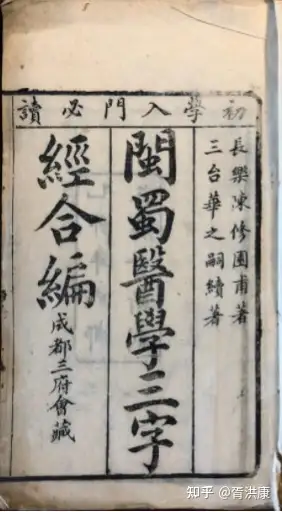 初學入門必讀
長樂陳修園甫著
三台華之嗣續著
閩蜀醫學三字
經合編
成都三府會藏
知乎 @胥洪康